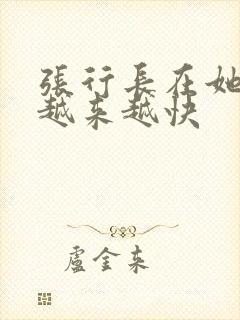 張行長在她
越来越快
盧金来